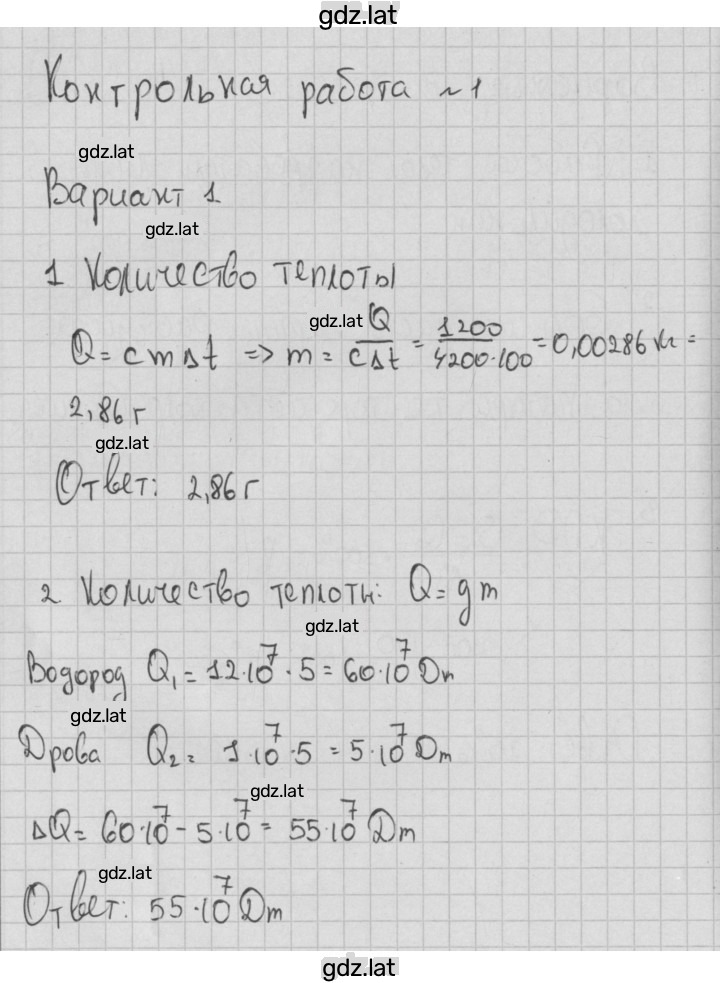 gdz.lat
Контрольная работа ~ 1
gdz.lat
Вариант 1
gdz.lat
1 Количество теплоты
gdz.lat
Q = cmΔt => m = Q/cΔt = 1200/4200·100 = 0,00286 кг =
2,86 г
gdz.lat
Ответ: 2,86 г
2 Количество теплоты: Q = gm
gdz.lat
Водород Q₁ = 12·10⁷ · 5 = 60·10⁷ Дж
gdz.lat
Дрова Q₂ = 1·10⁷·5 = 5·10⁷ Дж
gdz.lat
ΔQ = 60·10⁷ - 5·10⁷ = 55·10⁷ Дж
gdz.lat
Ответ: 55·10⁷ Дж
gdz.lat